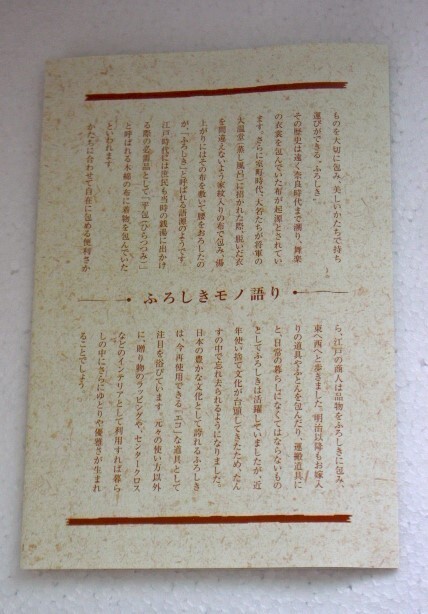 ものを大切に包み、美しいかたちで持ち
運びができる、ふろしき。
その歴史は遠く奈良時代まで溯り、舞楽
の衣裳を包んでいた布が起源とされてい
ます。さらに室町時代、大名たちが将軍の
大温堂(蒸し風呂)に招かれた際、脱いだ衣
を間違えないよう家紋入りの布で包み、湯
上がりにはその布を敷いて腰をおろしたの
が、「ふろしき」と呼ばれる語源のようです。
江戸時代には庶民も当時の銭湯に出かけ
る際の必需品として、「平包(ひらつつみ)」
と呼ばれる木綿の布に着物を包んでいた
といわれます。
かたちに合わせて自在に包める便利さか
ふろしきモノ語り
ら、江戸の商人は品物をふろしきに包み、
東へ西へと歩きました。明治以降もお嫁入
りの道具やふとんを包んだり、運搬道具に
と、日常の暮らしになくてはならないもの
としてふろしきは活躍していましたが、近
年使い捨て文化が台頭してきたため、たん
すの中で忘れ去られるようになりました。
日本の豊かな文化として誇れるふろしき
は、今、再使用できる「エコ」な道具として
注目を浴びています。元々の使い方以外
に、贈り物のラッピングや、センタークロス
などのインテリアとして利用すれば暮ら
しの中にさらにゆとりや優雅さが生まれ
ることでしょう。